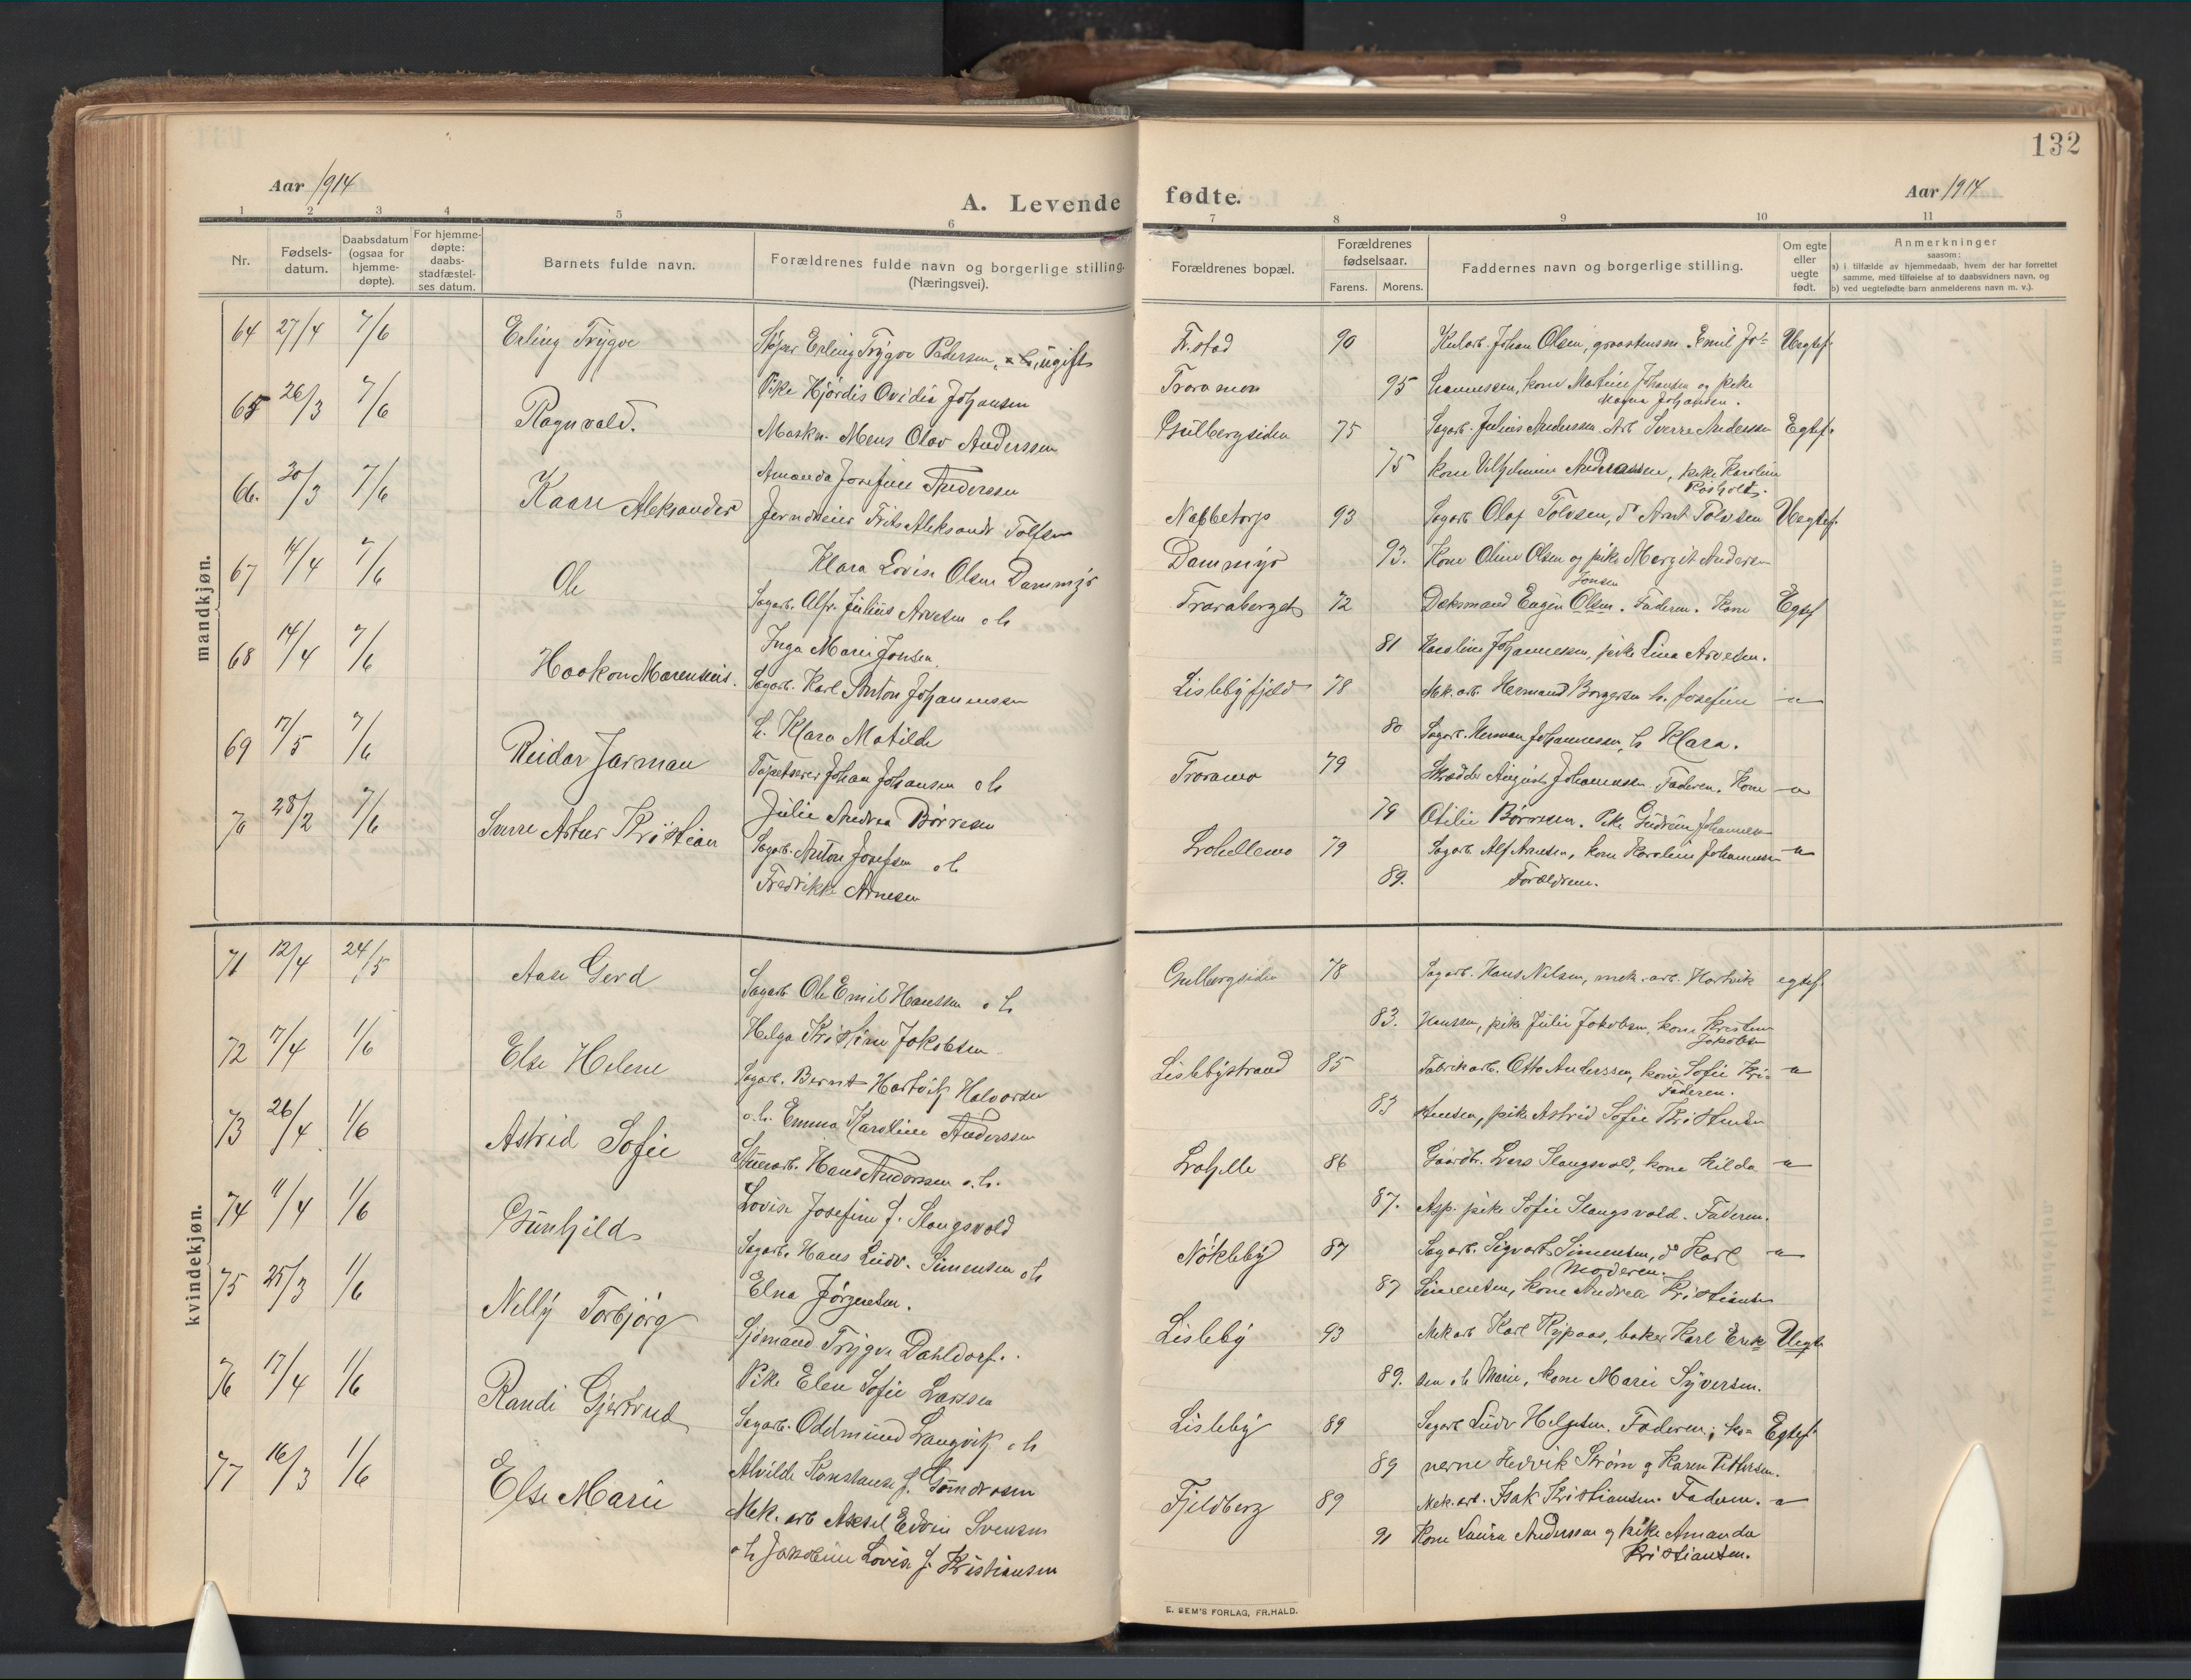 132
Aar 1914
A. Levende fødte.
Aar 1914
1 2 3 4 5 6 7 8 9 10 11
Nr.
Fødsels-
datum.
Daabsdatum
(ogsaa for
hjemme-
døpte).
For hjemme-
døpte:
daabs-
stadfæstel-
ses datum.
Barnets fulde navn.
Forældrenes fulde navn og borgerlige stilling.
(Næringsvei).
Forældrenes bopæl.
Forældrenes
fødselsaar.
Farens. Morens.
Faddernes navn og borgerlige stilling.
Om egte
eller
uegte
født.
Anmerkninger
saasom:
a) i tilfælde av hjemmedaab, hvem der har forrettet
samme, med tilføielse af to daabsvidners navn, og
b) ved uegtefødte barn anmelderens navn m. v.).
mandkjøn.
64 27/4 7/6 Erling Trygve Støper Erling Trygve Pedersen, ugift Fr.stad 90 Johan Olsen, Emil Jo= Uegtef.
Pike Hjørdis Ovidia Johansen Traramoen 95 hannessen, kone Martine Johansen og pike
Magna Johansen.
65 26/3 7/6 Ragnvald. Maskn. Mens Olav Anderssen Gulbergsiden 75 Sagarb. Julius Anderssen. Arb. Sverre Anderssen Egtef.
Amanda Josefine Anderssen 75 kone Vilhelmine Anderssen, pike Karoline
66. 20/3 7/6 Kaare Aleksander Jerndreier Frits Aleksandr Tolfsen Nabbetorp 93 Sagarb. Olaf Tolvsen, do Arnt Tolvsen Uegtef.
Klara Lovise Olsen Dammyr Dammyr 93. Kone Oline Olsen og pike Margit Andersen
67 14/4 7/6 Ole Sagarb. Alfr. Julius Arvesen o h Traraberget 72 Jonsen
Eugen Olsen. Faderen. Kone Egtef
Inga Marie Jonsen 81 Karoline Johannessen, pike Lina Arvesen.
68 14/4 7/6 Haakon Marensius. Sagarb. Karl Anton Johannessen Lislebyfjeld 78 Mek. arb. Hermand Borgersen h. Josefine –"–
h. Klara Matilde 80 Sagarb. Herman Johannessen, h Klara.
69 17/5 7/6 Reidar Jarman Tapetserer Johan Johansen o h Traramo 79 Skrædder August Johannessen. Faderen. Kone –"–
Julie Andrea Børresen 79 Otilie Børresen. Pike Gudrun Johannessen
70 28/2 7/6 Sverre Artur Kristian Sagarb. Anton Josefsen o h 79 Sagarb. Alf Arnesen, kone Karoline Johannessen –"–
Fredrikke Arnesen 89. Forældrene.
kvindekjøn.
71 12/4 24/5 Aase Gerd Sagarb. Ole Emil Hanssen o h Gulbergsiden 78 Sagarb. Hans Nilsen, mek. arb. Hartvik egtef.
Helga Kristine Jakobsen 83. Hanssen, pike Julie Jakobsen, kone Kristine
Jakobsen
72 17/4 1/6 Else Helene Sagarb. Bernt Hartvik Halvorsen Lislebystrand 85 Fabrikarb. Otto Anderssen, kone Sofie Kri= –"–
Faderen.
o.h. Emma Karoline Anderssen 83 stensen, pike Astrid Sofie Kristensen
73 26/4 1/6 Astrid Sofie Hans Anderssen o.h. 86 Gaardbr. Lars Slangsvold, kone Hilda –"–
Lovise Josefine f. Slangsvold 87. Asp. pike Sofie Slangsvold. Faderen.
74 11/4 1/6 Gunhild Sagarb. Hans Ludv. Simensen o h Nøkleby 87 Sagarb. Sigvart Simensen, do Karl –"–
Moderen.
Elna Jørgensen. 87 Simensen, kone Andrea Kristiansen
75 25/3 1/6 Nelly Torbjørg Sjømand Trygve Dahldorf. Lisleby 93 Mek arb Karl Rypaas, baker Karl Erik Uegte
Pike Elen Sofie Larssen 89. sen o h Marie, kone Marie Syversen.
76 17/4 1/6 Randi Gjertrud Sagarb. Oddmund Langvik o h Lisleby 89 Sagarb Ludv Helgesen. Faderen; ko= Egtef.
Alvilde Konstanse f. 89 nerne Hedvik Strøm og Karen Pettersen.
77 16/3 1/6 Else Marie Mek. arb Aksel Edvin Svensen Fjeldberg 89 Mek. arb. Isak Kristiansen. Faderen. –"–
o h Jakobine Lovise f. Kristiansen 91 Kone Laura Anderssen og pike Amanda
Kristiansen.
E. SEM'S FORLAG, FR.HALD.